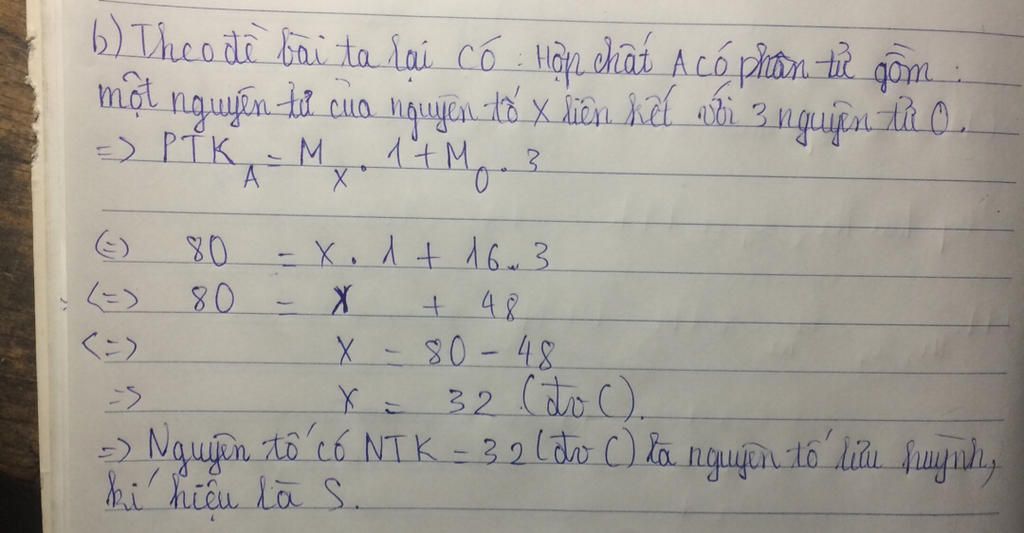 b) Theo đề bài ta lại có : Hợp chất A có phân tử gồm :
một nguyên tử của nguyên tố X liên kết với 3 nguyên tử O.
=> PTK_A = M_X . 1 + M_O . 3
(=) 80 = X . 1 + 16 . 3
<=> 80 = X + 48
<=> X = 80 - 48
=> X = 32 (đvC).
=> Nguyên tố có NTK = 32 (đvC) là nguyên tố lưu huỳnh,
kí hiệu là S.